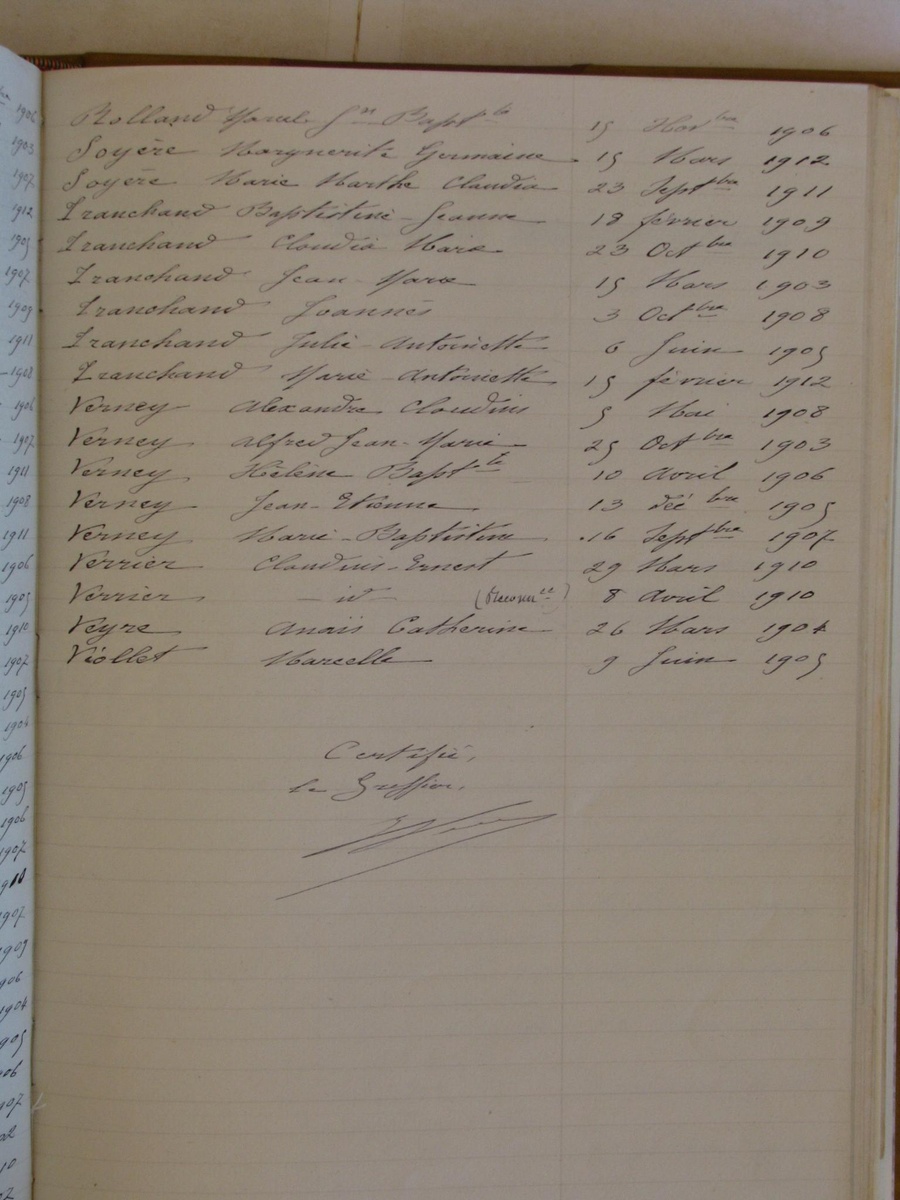 Rolland Marcel Jn Baptte 15 Novbre 1906
Soyère Marguerite Germaine 15 Mars 1912
Soyère Marie Marthe Claudia 23 Septbre 1911
Tranchand Baptistine-Jeanne 18 février 1909
Tranchand Claudia Marie 23 Octbre 1910
Tranchand Jean-Marie 15 Mars 1903
Tranchand Joannès 3 Octbre 1908
Tranchand Julie-Antoinette 6 Juin 1905
Tranchand Marie-Antoinette 15 février 1912
Verney Alexandre Claudius 5 Mai 1908
Verney Alfred Jean-Marie 25 Octbre 1903
Verney Hélène Baptte 10 Avril 1906
Verney Jean-Etienne 13 Décbre 1905
Verney Marie-Baptistine 16 Septbre 1907
Verrier Claudius-Ernest 29 Mars 1910
Verrier - id - (Reconnce) 8 Avril 1910
Veyre Anaïs Catherine 26 Mars 1904
Viollet Marcelle 9 Juin 1905
Certifié,
Le Greffier,